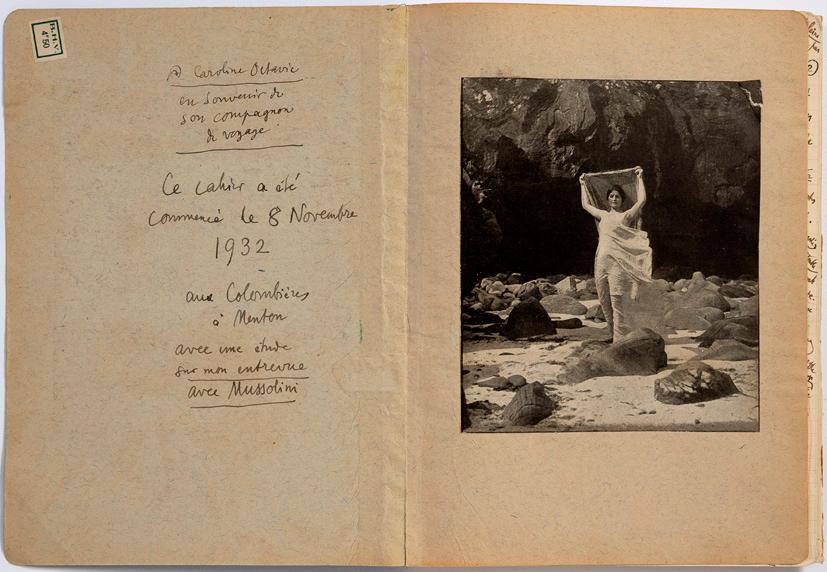 B.H.V.
4f50
à Caroline Octavie
en souvenir de
son compagnon
de voyage
Ce cahier a été
commencé le 8 Novembre
1932
aux Colombières
à Menton
avec une étude
sur mon entrevue
avec Mussolini